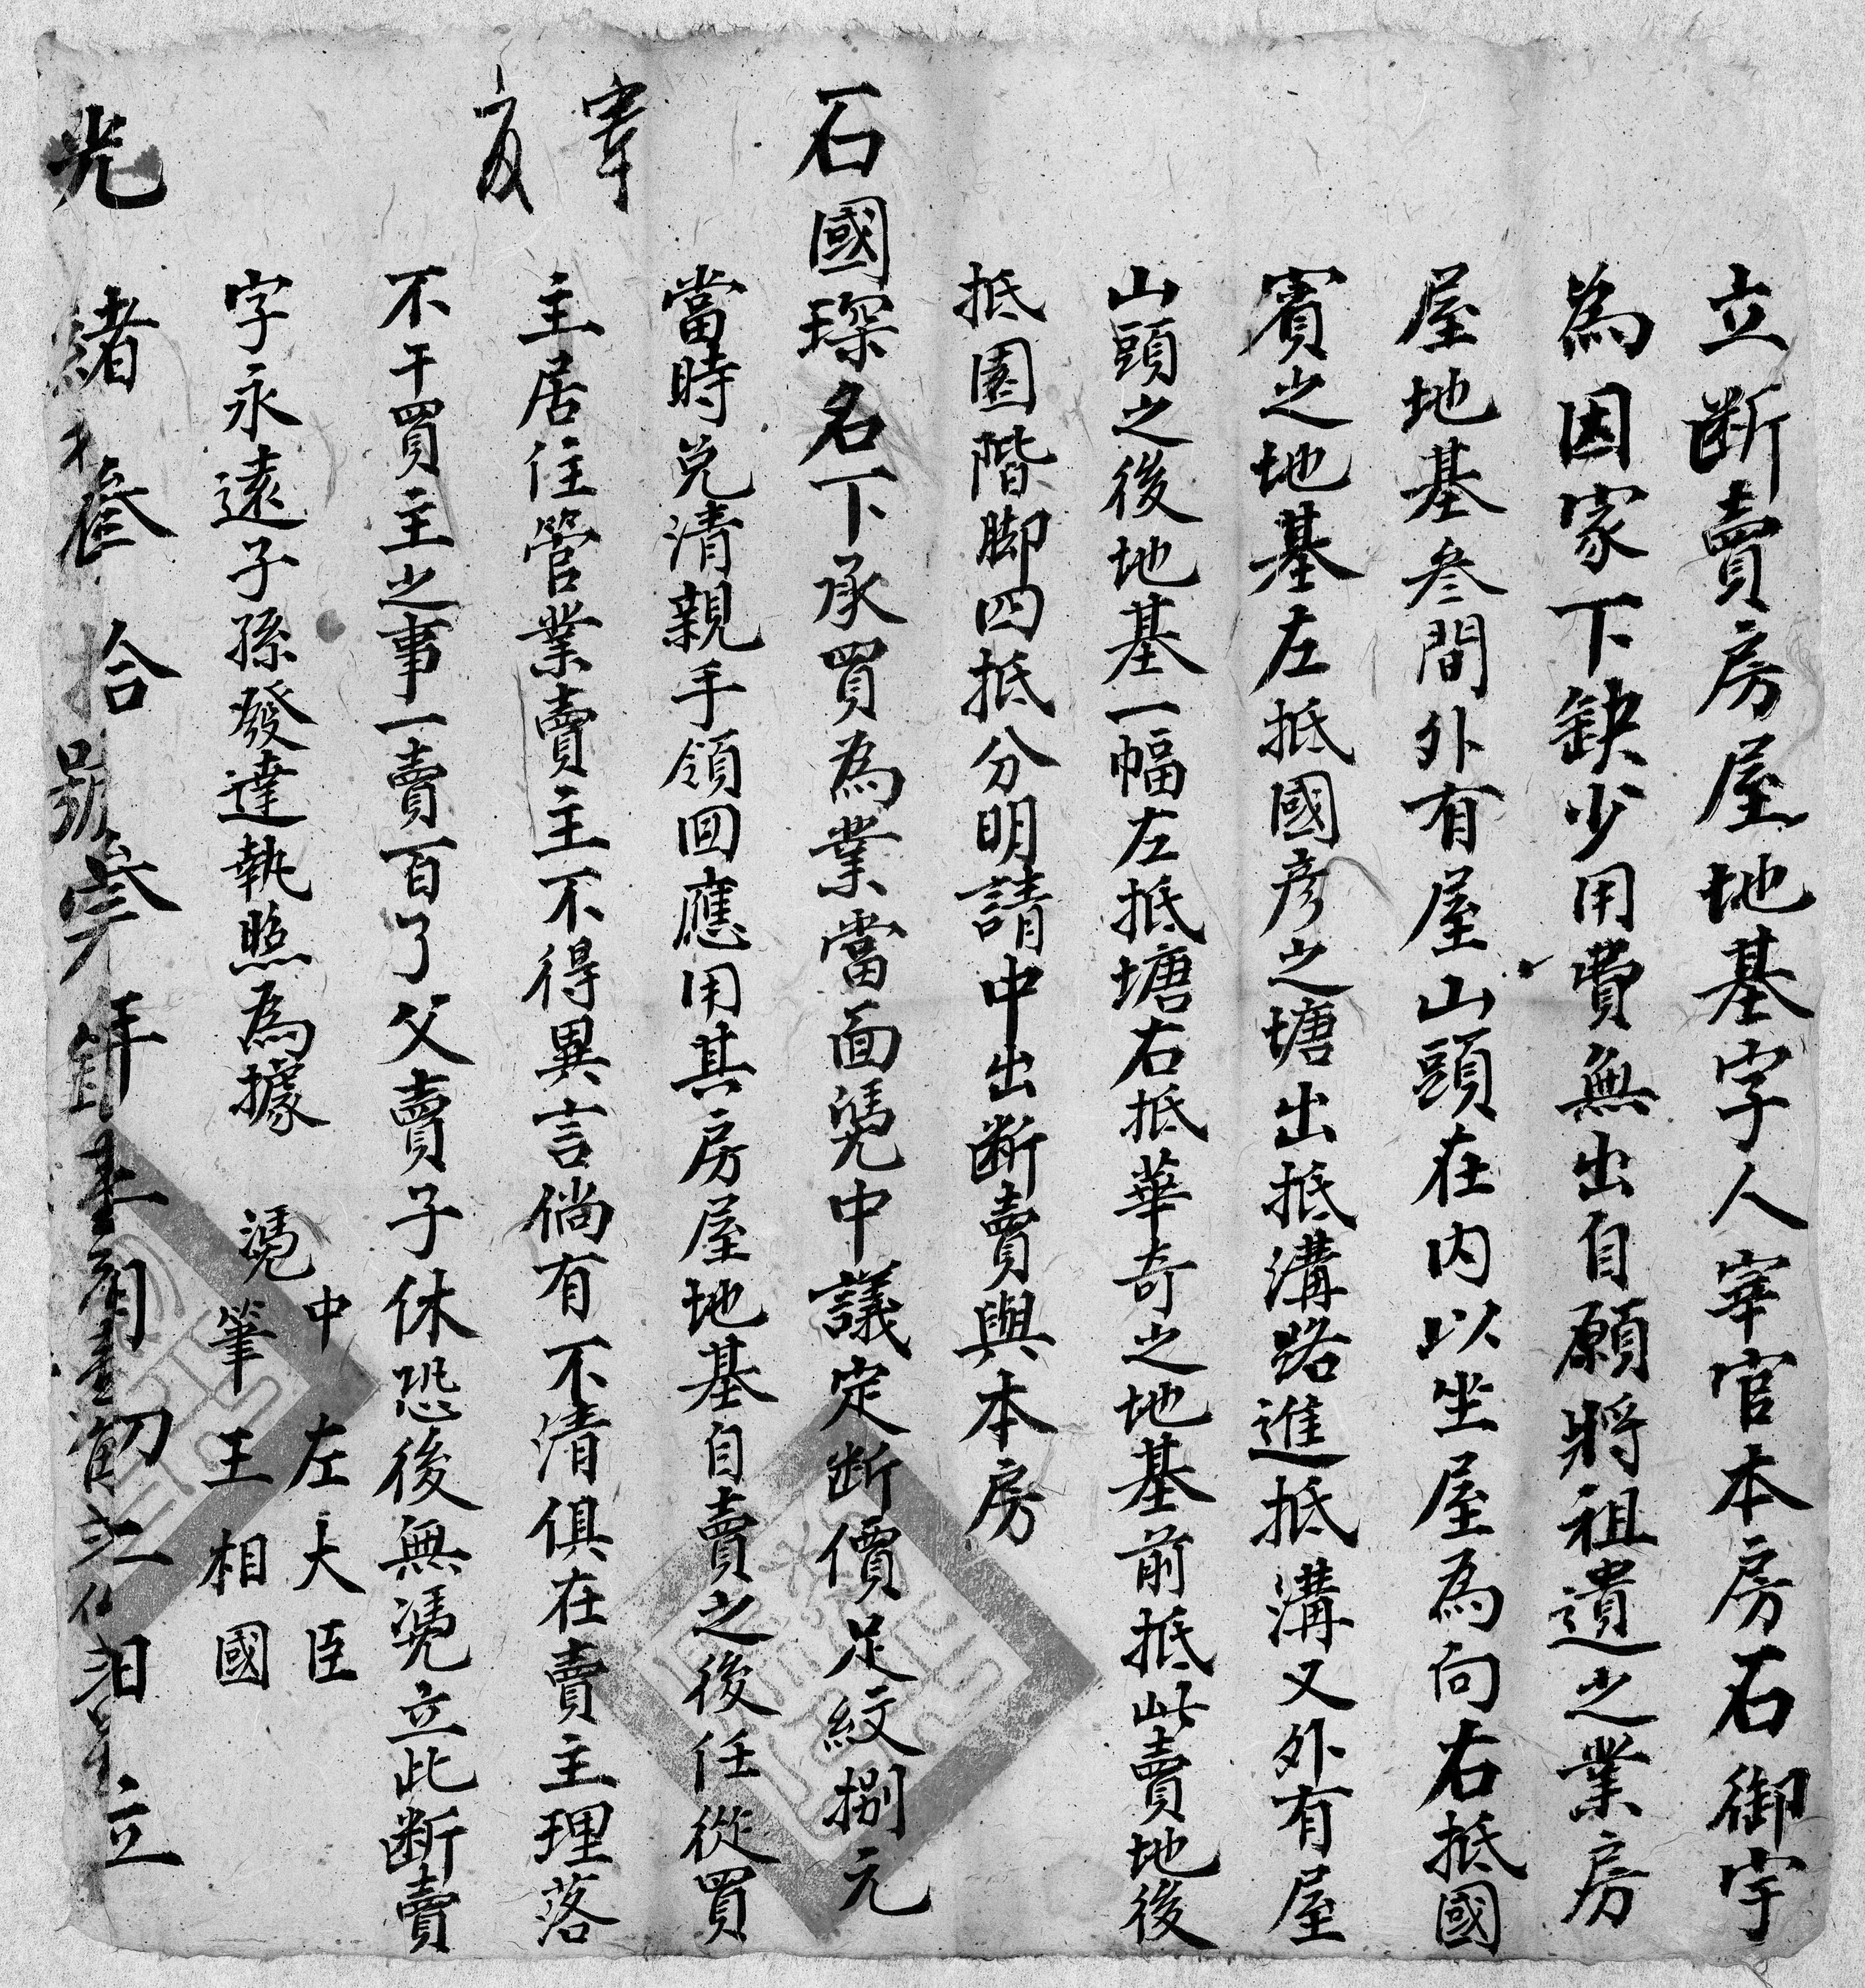 立断賣房屋地基字人宰官本房石御宇
為因家下缺少用費無出自願將祖遺之業房
屋地基叁間外有屋山頭在内以坐屋為向右抵國
賓之地基左抵國彦之塘出抵溝路進抵溝又外有屋
山頭之後地基一幅左抵塘右抵華奇之地基前抵此賣地後
抵園階脚四抵分明請中出断賣與本房
石國琛名下承買為業當面凴中議定断價足紋捌元
當時兑清親手領回應用其房屋地基自賣之後任從買
主居住管業賣主不得異言倘有不清俱在賣主理落
不干買主之事一賣百了父賣子休恐後無凴立此断賣
字永遠子孫發達執照為據
凴
中 左大臣
筆 王相國
光緒叁拾年立